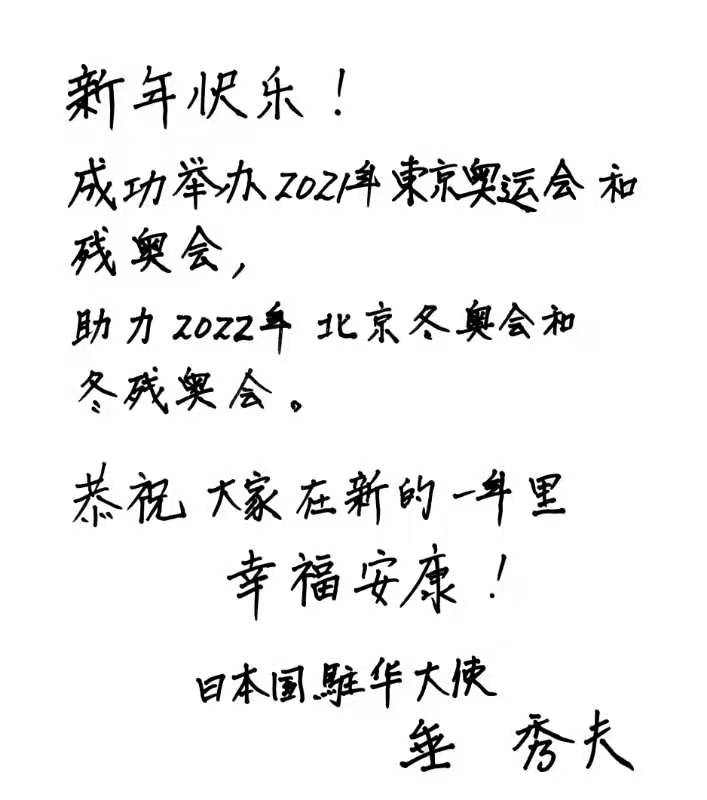 新年快乐！
成功举办2021年東京奥运会和
残奥会，
助力2022年北京冬奥会和
冬残奥会。
恭祝大家在新的一年里
幸福安康！
日本国駐华大使
垂 秀夫